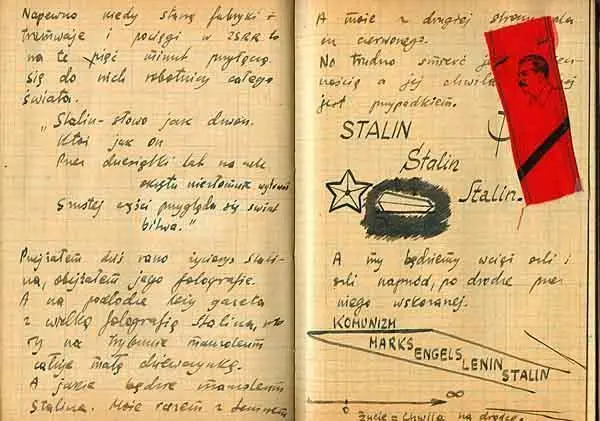 Napewno kiedy staną fabryki i
tramwaje i pociągi w ZSRR to
na te pięć minut przyłączą
się do nich robotnicy całego
świata.
„Stalin - słowo jak dzwon.
Któż jak on
Przez dziesiątki lat na
okrętu niezłomnie
Szóstej części przygląda się świat
bitwa."
Przejrzałem dziś rano życiorys Stali-
na, obejrzałem jego fotografie.
A na podłodze leży gazeta
z wielką fotografią Stalina, któ
ry na trybunie mauzoleum
całuje małą dziewczynkę.
A jakie będzie mauzoleum
Stalina. Może razem z Leninem
A może z drugiej strony pla
cu czerwonego.
No trudno śmierć
nością a jej chwila
jest przypadkiem.
STALIN
Stalin
Stalin.
A my będziemy wciąż szli i
szli naprzód, po drodze przez
niego wskazanej.
KOMUNIZM
MARKS
ENGELS
LENIN
STALIN
0
∞
Życie = Chwila na drodze.